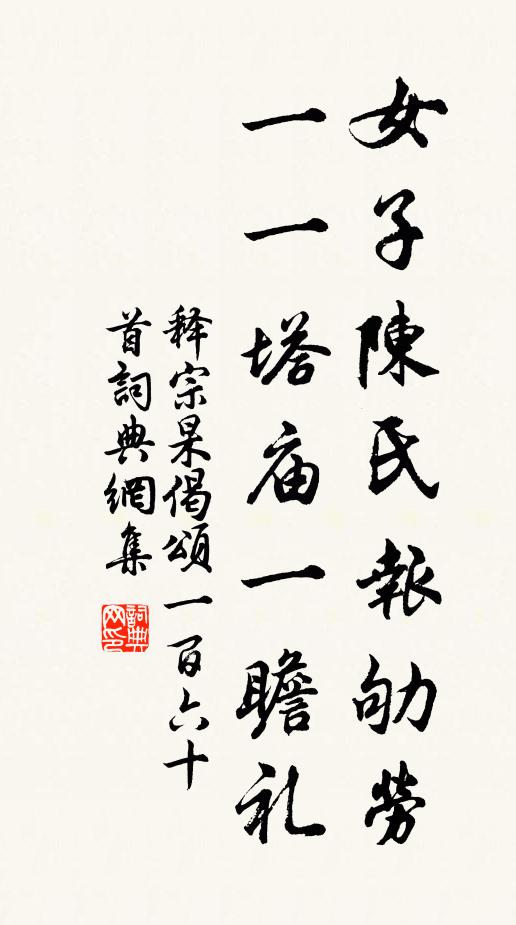 女子陳氏報劬勞
一一塔庙一瞻礼
释宗杲偈頌一百六十
首詞典網集
詞典网印